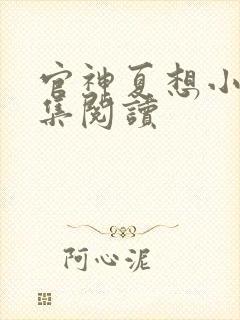 官神夏想小
集閱讀
阿心泥